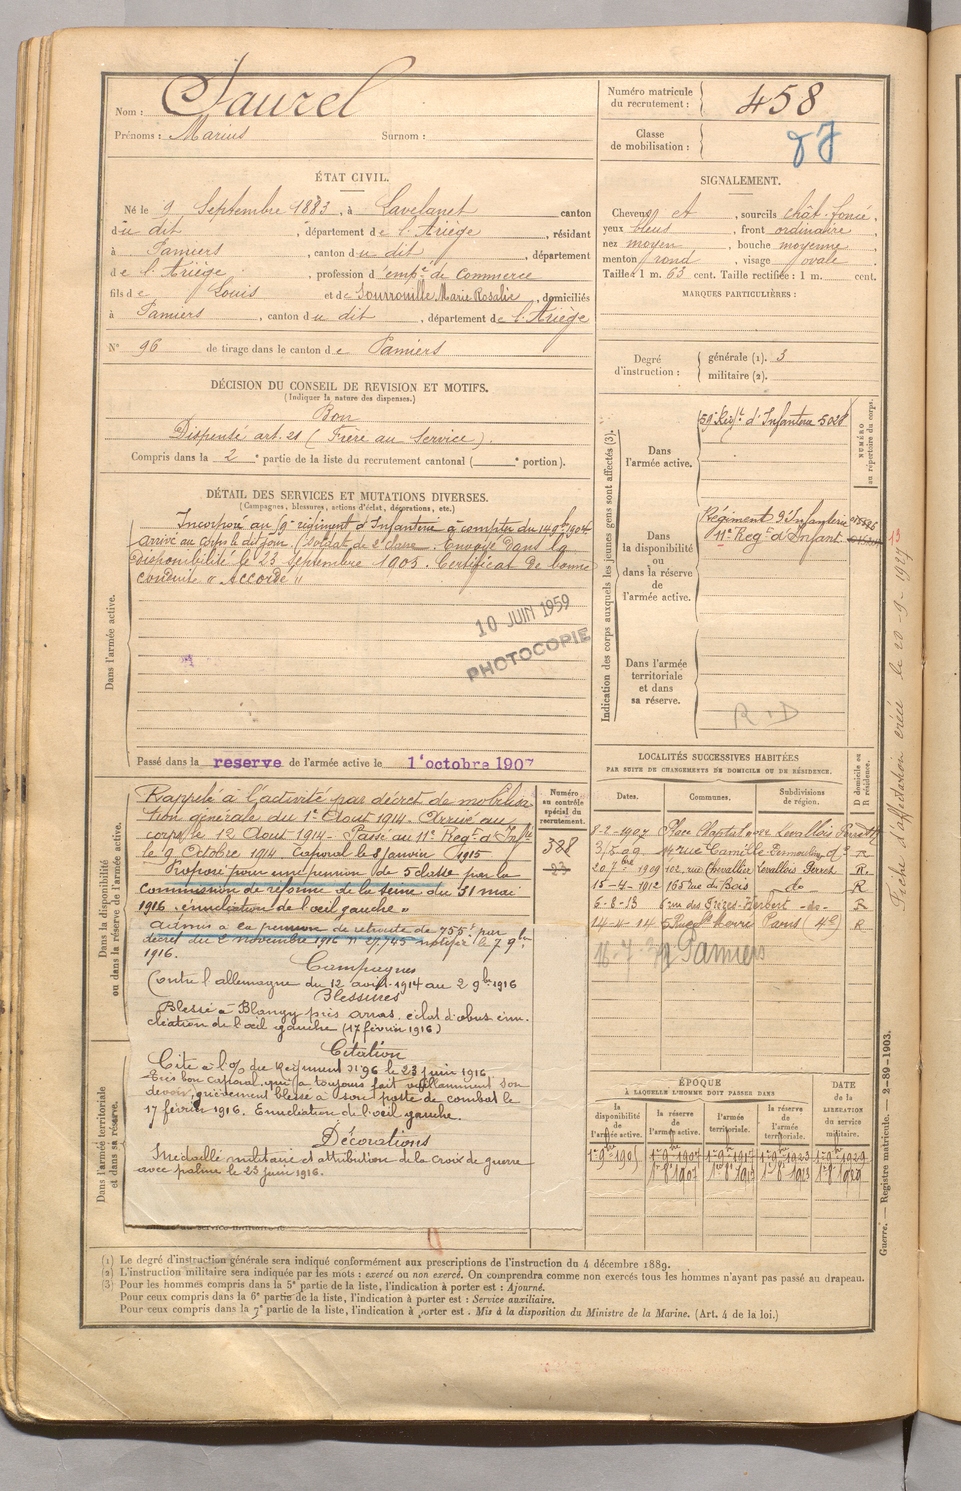 Nom : Saurel
Prénoms : Marius Surnom :
Numéro matricule du recrutement : 458
Classe de mobilisation :
ÉTAT CIVIL.
Né le 9 Septembre 1883, à Lavelanet canton
du dit, département de l'Ariège, résidant
à Pamiers, canton du dit, département
de l'Ariège, profession d'empé de Commerce
fils de Louis et de Marie Rosalie, domiciliés
à Pamiers, canton du dit, département de l'Ariège
N° 96 de tirage dans le canton de Pamiers
SIGNALEMENT.
Cheveux et, sourcils chât-foncé,
yeux bleus, front ordinaire
nez moyen, bouche moyenne
menton rond, visage ovale
Taille : 1 m. 63 cent. Taille rectifiée : 1 m. cent.
MARQUES PARTICULIÈRES :
Degré d'instruction : générale (1). 3
militaire (2).
DÉCISION DU CONSEIL DE REVISION ET MOTIFS.
(Indiquer la nature des dispenses.)
Bon
Dispensé art. 21 (Frère au Service).
Compris dans la 2e partie de la liste du recrutement cantonal ( e portion).
DÉTAIL DES SERVICES ET MUTATIONS DIVERSES.
(Campagnes, blessures, actions d'éclat, décorations, etc.)
Incorporé au régiment d'Infanterie à compter du 1904
arrivé au corps le dit jour. Soldat de 2e classe. Envoyé dans la
disponibilité le 23 Septembre 1905. Certificat de bonne
conduite « Accordé »
10 JUIN 1959
PHOTOCOPIE
Dans l'armée active.
Passé dans la reserve de l'armée active le 1 octobre 1907
Indication des corps auxquels les jeunes gens sont affectés (3).
Dans l'armée active.
59e Régt d'Infanterie 5028
NUMÉRO au répertoire du corps.
Dans la disponibilité ou dans la réserve de l'armée active.
Régiment d'Infanterie
11e Reg. d'Infant.
Dans l'armée territoriale et dans sa réserve.
R D
Fiche d'affectation créée le 20-9-1927
Dans la disponibilité ou dans la réserve de l'armée active.
Rappelé à l'activité par décret de mobilisa-
tion générale du 1er Aout 1914. Arrivé au
corps le 12 Aout 1914. Passé au 11e Reg. d'Infie
le 9 Octobre 1914. Caporal le 8 Janvier 1915
Proposé pour une pension de 5 classe par la
Commission de réforme de la Seine du 31 mai
1916 « énucléation de l'œil gauche »
Admis à la pension de retraite de 755f par
décret du 2 novembre 1916 n° 27,745 notifié le 7 9bre
1916.
Campagnes
Contre l'allemagne du 12 1914 au 2 9bre 1916
Blessures
Blessé à Blangy près arras, éclat d'obus énu-
cléation de l'œil gauche (17 février 1916)
Citation
Cité à l'O/ du Régiment N° 96 le 23 juin 1916
Très bon caporal, qui a toujours fait vaillamment son
devoir, grièvement blessé à son poste de combat le
17 février 1916. Enucléation de l'œil gauche.
Décorations
Médaille militaire et attribution de la croix de guerre
avec palme le 23 juin 1916.
Numéro au contrôle spécial du recrutement.
388
Dans l'armée territoriale et dans sa réserve.
LOCALITÉS SUCCESSIVES HABITÉES
PAR SUITE DE CHANGEMENTS DE DOMICILE OU DE RÉSIDENCE.
Dates. Communes. Subdivisions de région. D domicile ou R résidence.
8-2-1907 Place Chaptal Levallois Perret
rue Camille Desmoulins do R
1909 102, rue Chevallier Levallois Perret R.
15-4-1912 165 rue du Bois do R
6-8-13 Herbert do R
14-4-14 Paris (4e) R
Pamiers
ÉPOQUE
À LAQUELLE L'HOMME DOIT PASSER DANS
la disponibilité de l'armée active. la réserve de l'armée active. l'armée territoriale. la réserve de l'armée territoriale. DATE de la LIBÉRATION du service militaire.
Guerre. — Registre matricule. — 2-89-1903.
(1) Le degré d'instruction générale sera indiqué conformément aux prescriptions de l'instruction du 4 décembre 1889.
(2) L'instruction militaire sera indiquée par les mots : exercé ou non exercé. On comprendra comme non exercés tous les hommes n'ayant pas passé au drapeau.
(3) Pour les hommes compris dans la 5e partie de la liste, l'indication à porter est : Ajourné.
Pour ceux compris dans la 6e partie de la liste, l'indication à porter est : Service auxiliaire.
Pour ceux compris dans la 7e partie de la liste, l'indication à porter est : Mis à la disposition du Ministre de la Marine. (Art. 4 de la loi.)